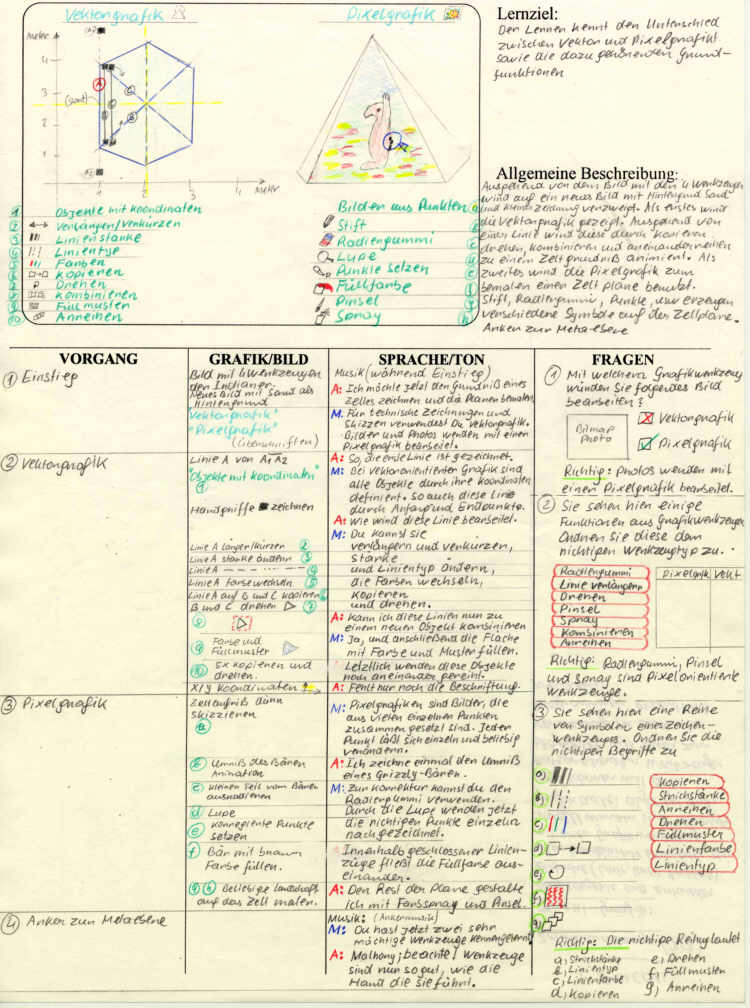 Vektorgrafik
Pixelgrafik
Meter
4
3
2
1
A
C
B
1
2
3
Meter
1 Objekte mit Koordinaten
2 Verlängern/Verkürzen
3 Linienstärke
4 Linientyp
5 Farben
6 Kopieren
7 Drehen
8 Kombinieren
9 Füllmuster
10 Anreihen
Bilder aus Punkten a
Stift b
Radiergummi c
Lupe d
Punkte setzen e
Füllfarbe f
Pinsel g
Spray h
Lernziel:
Der Lerner kennt den Unterschied
zwischen Vektor und Pixelgrafik
sowie die dazu gehörenden Grund-
funktionen
Allgemeine Beschreibung:
Ausgehend von dem Bild mit den 4 Werkzeugen
wird auf ein neues Bild mit Hintergrund Sand
und kleine Zeichnung verzweigt. Als erstes wird
die Vektorgrafik gezeigt. Ausgehend von
einer Linie wird diese durch kopieren,
drehen, kombinieren und aneinanderreihen
zu einem Zeltgrundriß animiert. Als
zweites wird die Pixelgrafik zum
bemalen einer Zeltplane benutzt.
Stift, Radiergummi, Punkte, usw erzeugen
verschiedene Symbole auf der Zeltplane.
Anker zur Metaebene
VORGANG
GRAFIK/BILD
SPRACHE/TON
FRAGEN
1 Einstieg
Bild mit 4 Werkzeugen
der Indianer.
Neues Bild mit Sand als
Hintergrund
"Vektorgrafik"
"Pixelgrafik"
(Überschriften)
Musik (während Einstieg)
A: Ich möchte jetzt den Grundriß eines
Zeltes zeichnen und die Planen bemalen
M: Für technische Zeichnungen und
Skizzen verwendest Du Vektorgrafik.
Bilder und Photos werden mit einer
Pixelgrafik bearbeitet.
2 Vektorgrafik
Linie A von A1 A2
"Objekte mit Koordinaten"
1
Handgriffe zeichnen
Linie A länger/kürzer 2
Linie A stärke ändern 3
Linie A 4
Linie A farbe wechseln 5
Linie A auf B und C kopieren 6
B und C drehen 7
8
9 Farbe und
Füllmuster
10 5x kopieren und
drehen.
X/Y Koordinaten
A: So, die erste Linie ist gezeichnet.
M: Bei Vektororientierter Grafik sind
alle Objekte durch ihre Koordinaten
definiert. So auch diese Linie
durch Anfang und Endpunkte.
A: Wie wird diese Linie bearbeitet.
M: Du kannst sie
verlängern und verkürzen,
Stärke
und Linientyp ändern,
die Farben wechseln,
kopieren
und drehen.
A: Kann ich diese Linien nun zu
einem neuen Objekt kombinieren
M: Ja, und anschließend die Fläche
mit Farbe und Muster füllen.
Letztlich werden diese Objekte
noch aneinander gereiht.
A: Fehlt nur noch die Beschriftung.
3 Pixelgrafik
Zeltaufriß dünn
skizzieren
a
b Umriß des Bären
Animation
c kleinen Teil vom Bären
ausradieren
d Lupe
e korregierte Punkte
setzen
f Bär mit brauner
Farbe füllen.
g h Beliebige Landschaft
auf das Zelt malen.
M: Pixelgrafiken sind Bilder, die
aus vielen einzelnen Punkten
zusammen gesetzt sind. Jeder
Punkt läßt sich einzeln und beliebig
verändern.
A: Ich zeichne einmal den Umriß
eines Grizzly-Bären.
M: Zur Korrektur kannst du den
Radiergummi verwenden.
Durch die Lupe werden jetzt
die richtigen Punkte einzeln
nachgezeichnet.
Innerhalb geschlossener Linien-
züge fließt die Füllfarbe aus-
einander.
A: Den Rest der Plane gestalte
ich mit Farbspray und Pinsel.
4 Anker zur Metaebene
Musik: (Ankermusik)
M: Du hast jetzt zwei sehr
mächtige Werkzeuge kennengelernt
A: Mathony, beachte! Werkzeuge
sind nur so gut, wie die
Hand die sie führt.
1 Mit welchem Grafikwerkzeug
würden Sie folgendes Bild
bearbeiten?
Bitmap
Photo
Vektorgrafik
Pixelgrafik
Richtig: Photos werden mit
einer Pixelgrafik bearbeitet.
2 Sie sehen hier einige
Funktionen aus Grafikwerkzeugen
Ordnen Sie diese dem
richtigen Werkzeugtyp zu.
Radiergummi
Linie verlängern
Drehen
Pinsel
Spray
Kombinieren
Anreihen
Pixelgrafik Vekt
Richtig: Radiergummi, Pinsel
und Spray sind Pixelorientierte
Werkzeuge.
3 Sie sehen hier eine Reihe
von Symbolen eines Zeichen-
werkzeuges. Ordnen Sie die
richtigen Begriffe zu
a)
b)
c)
d)
e)
f)
g)
Kopieren
Strichstärke
Anreihen
Drehen
Füllmuster
Linienfarbe
Linientyp
Richtig: Die richtige Reihung lautet
a, Strichstärke e, Drehen
b, Linientyp f, Füllmuster
c, Linienfarbe g, Anreihen
d, Kopieren